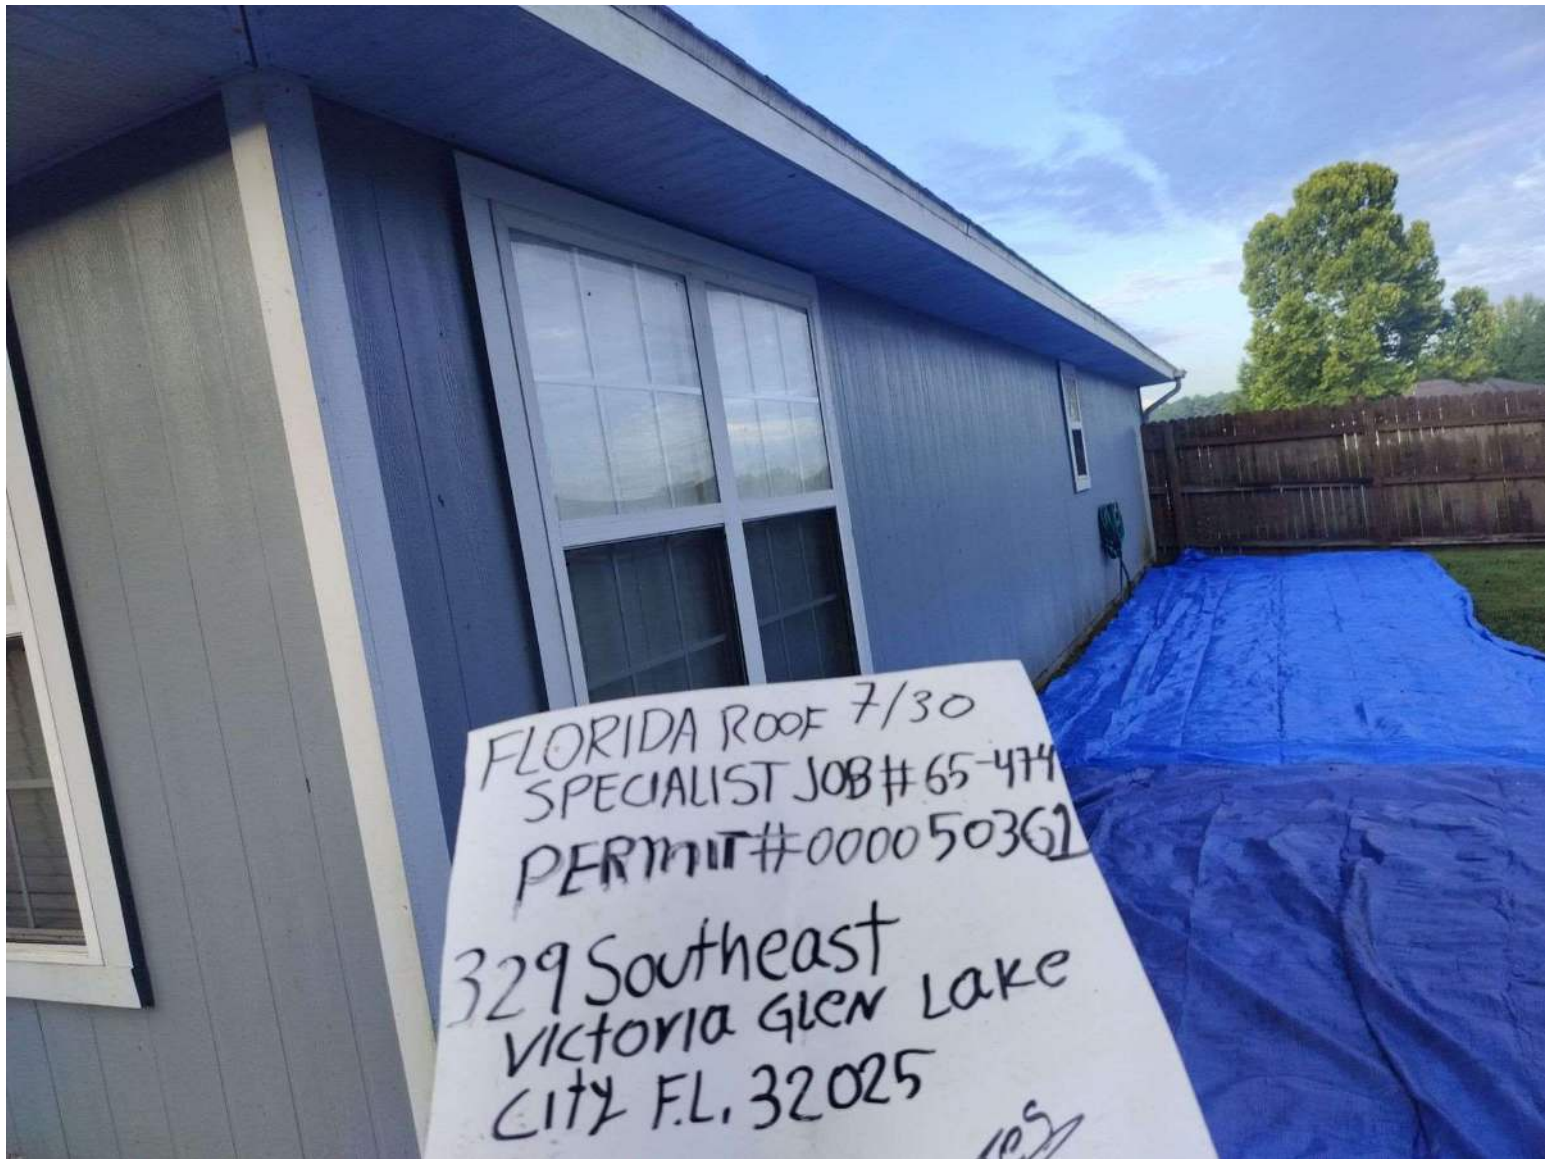 FLORIDA ROOF 7/30
SPECIALIST JOB # 65-474
PERMIT # 000050361
329 Southeast
Victoria Glen Lake
City F.L. 32025